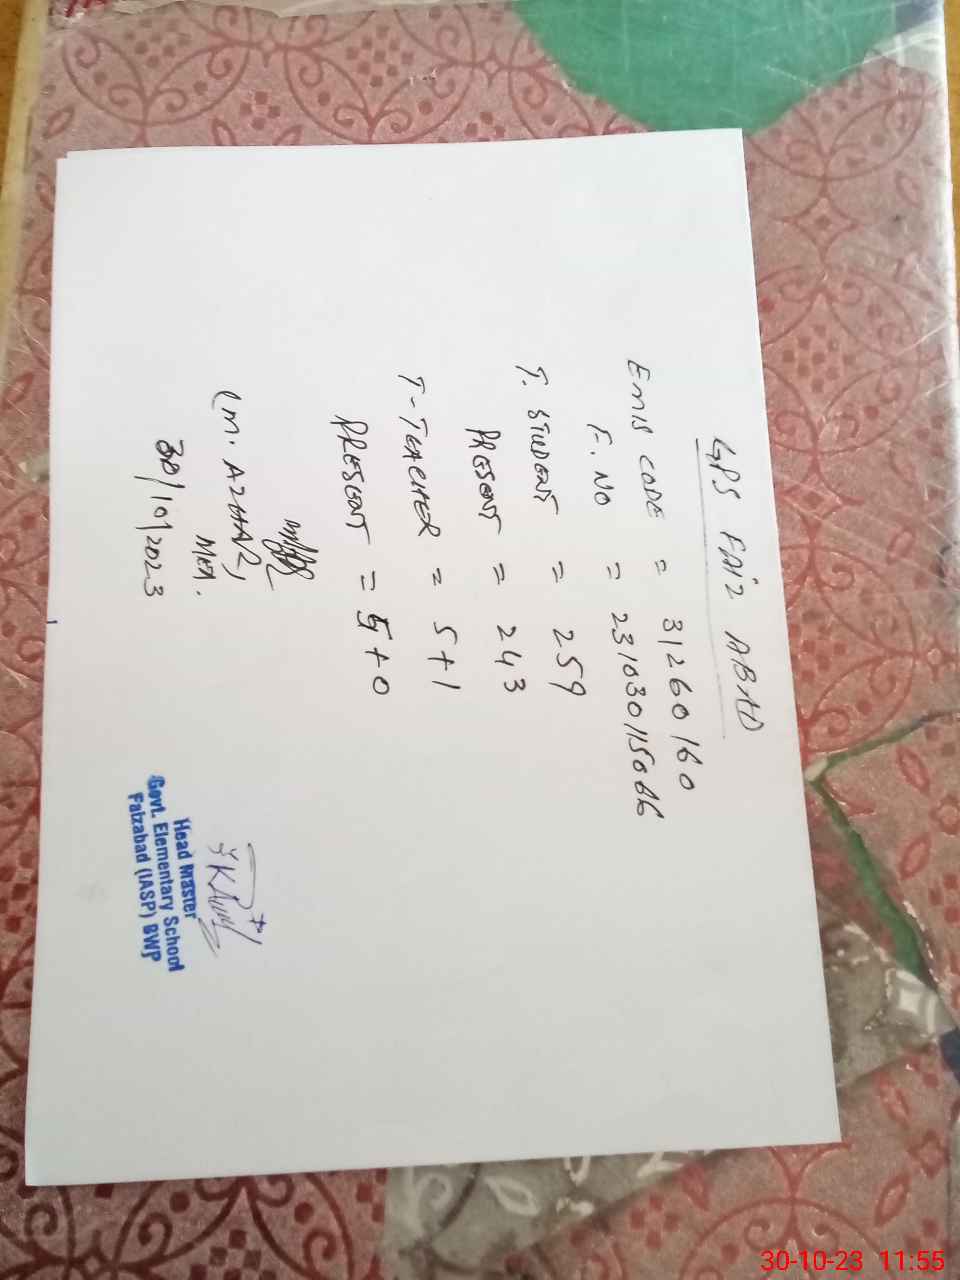 GPS FAIZ ABAD
EMIS CODE = 31260160
F. NO = 231030115066
T. STUDENT = 259
PRESENT = 243
T-TEACHER = 5+1
PRESENT = 5+0
(M. AZHAR,
MEA.
30/10/2023
Head Master
Govt. Elementary School
Faizabad (IASP) BWP
30-10-23 11:55